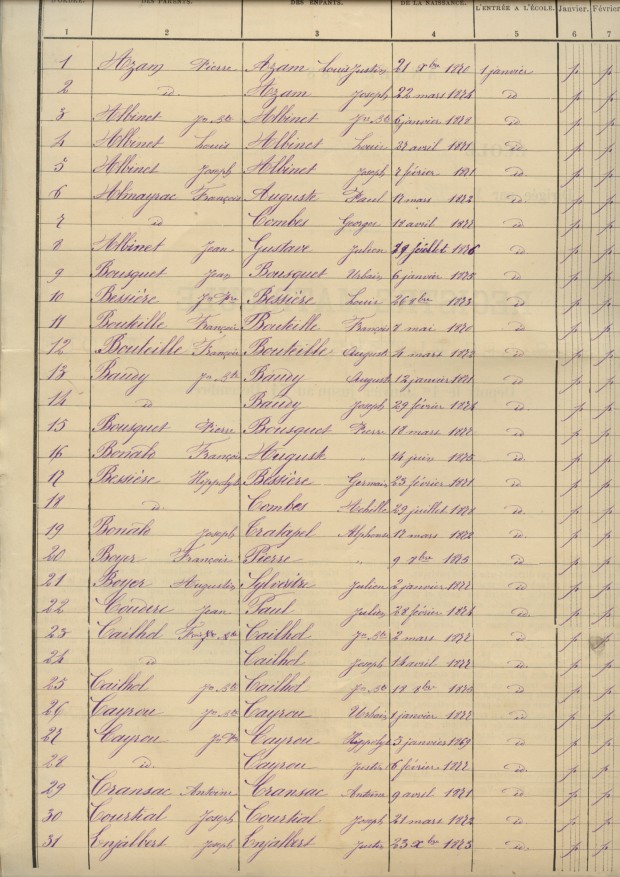 D'ORDRE. DES PARENTS. DES ENFANTS. DE LA NAISSANCE. L'ENTRÉE A L'ÉCOLE. Janvier. Février
1 2 3 4 5 6 7
1 Azam Pierre Azam Louis Justin 21 Xbre 1870 1 janvier p p
2 d Azam Joseph 22 mars 1876 d p p
3 Albinet Jn Bte Albinet Jn Bte 6 janvier d p p
4 Albinet Louis Albinet Louis avril 1871 d p p
5 Albinet Joseph Albinet Joseph 7 février 1871 d p p
6 Almayrac François Auguste Paul mars 1872 d p p
7 d Combes Georges avril d p p
8 Albinet Jean Gustave Julien 29 juillet 1876 d p p
9 Bousquet Jean Bousquet Urbain 6 janvier 1875 d p p
10 Bessière Bessière Louis 26 8bre 1873 d p p
11 Bouteille François Bouteille François mai 1870 d p p
12 Bouteille François Bouteille August 4 mars d p p
13 Baury Jn Bte Baury August 12 janvier 1871 d p p
14 d Baury Joseph 29 février 1876 d p p
15 Bousquet Pierre Bousquet Pierre mars d p p
16 Bonale François Auguste " 14 juin 1875 d p p
17 Bessière Hyppolyte Bessière Germain 23 février 1871 d p p
18 d. Combes Achille 29 juillet d p p
19 Bonale Joseph Cratapel Alphonse mars 1872 d p p
20 Boyer François Pierre " 9 1875 d p p
21 Boyer Augustin Sylvestre Julien 2 janvier d p p
22 Couderc Jean Paul Julien 28 février 1874 d p p
23 Cailhol Cailhol Jn Bte 2 mars d p p
24 d Cailhol Joseph 14 avril d p p
25 Cailhol Jn Bte Cailhol Jn Bte d p p
26 Cayrou Jn Bte Cayrou Urbain 1 janvier d p p
27 Cayrou Cayrou Hippolyte 3 janvier 1869 d p p
28 d. Cayrou Justin 6 février d p p
29 Cransac Antoine Cransac Antoine 9 avril 1871 d p p
30 Courtial Joseph Courtial Joseph 21 mars 1872 d p p
31 Enjalbert Joseph Enjalbert Justin 23 Xbre 1873 d. p p